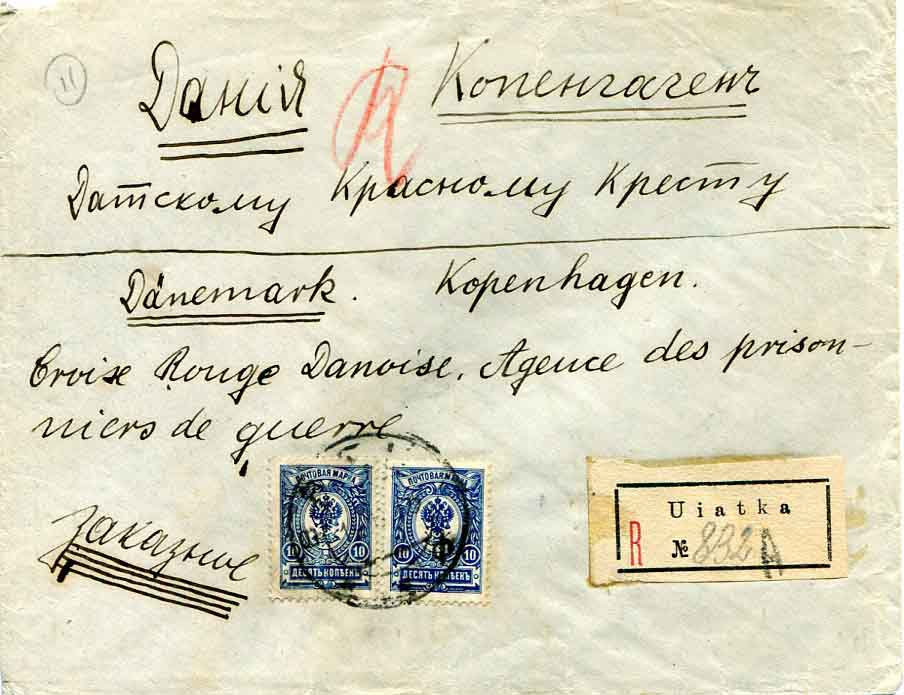 11
Данія Копенгагенъ
Датскому Красному Кресту
Dänemark. Kopenhagen.
Croise Rouge Danoise, Agence des prison-
niers de guerre
заказное
ПОЧТОВАЯ МАРКА ПОЧТОВАЯ МАРКА
10 10 10 Ф 10
ДЕСЯТЬ КОПѢЕКЪ ДЕСЯТЬ КОПѢЕКЪ
Uiatka
R № 832 A